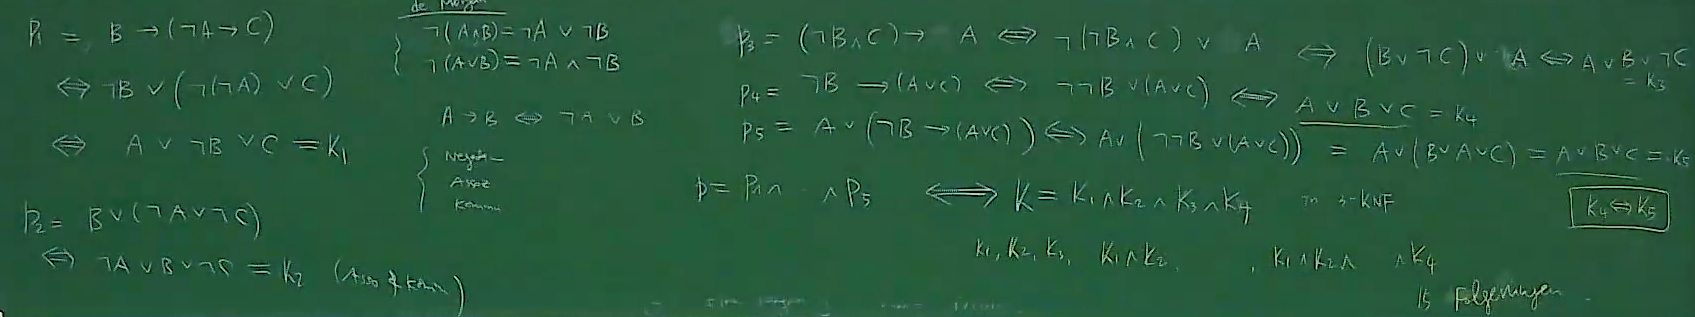 P₁ = B → (¬A → C)
⇔ ¬B ∨ (¬(¬A) ∨ C)
⇔ A ∨ ¬B ∨ C = K₁
P₂ = B ∨ (¬A ∨ ¬C)
⇔ ¬A ∨ B ∨ ¬C = K₂ (Asso & Komm)
de Morgan
¬(A∧B) = ¬A ∨ ¬B
¬(A∨B) = ¬A ∧ ¬B
A → B ⇔ ¬A ∨ B
Assoz
Komm
P₃ = (¬B ∧ C) → A ⇔ ¬(¬B ∧ C) ∨ A ⇔ (B ∨ ¬C) ∨ A ⇔ A ∨ B ∨ ¬C
= K₃
P₄ = ¬B → (A∨C) ⇔ ¬¬B ∨ (A∨C) ⇔ A ∨ B ∨ C = K₄
P₅ = A ∨ (¬B → (A∨C)) ⇔ A ∨ (¬¬B ∨ (A∨C)) = A ∨ (B ∨ A ∨ C) = A ∨ B ∨ C = K₅
p = P₁ ∧ ∧ P₅ ⇔ K = K₁ ∧ K₂ ∧ K₃ ∧ K₄ in 3-KNF
K₄ ⇔ K₅
K₁, K₂, K₃, K₁∧K₂, , K₁∧K₂∧ ∧K₄
15 Folgerungen